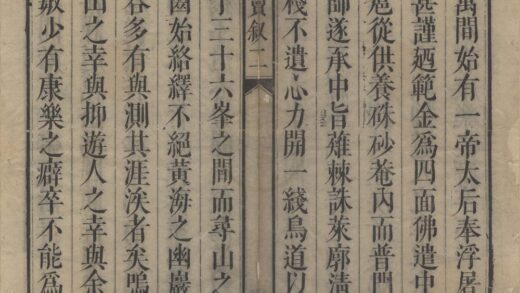 萬間始有一帝太后奉浮屠
甚謹廼範金爲四面佛遣中
扈從供養硃砂菴內而普門
師遂承中旨薙棘誅萊廓淸
棧不遺心力開一綫鳥道以
敘二
十三十六峯之間而尋山之
齒始絡繹不絕黃海之幽巖
谷多有與測其涯涘者矣嗚
山之幸與抑遊人之幸與余
數少有康樂之癖卒不能爲